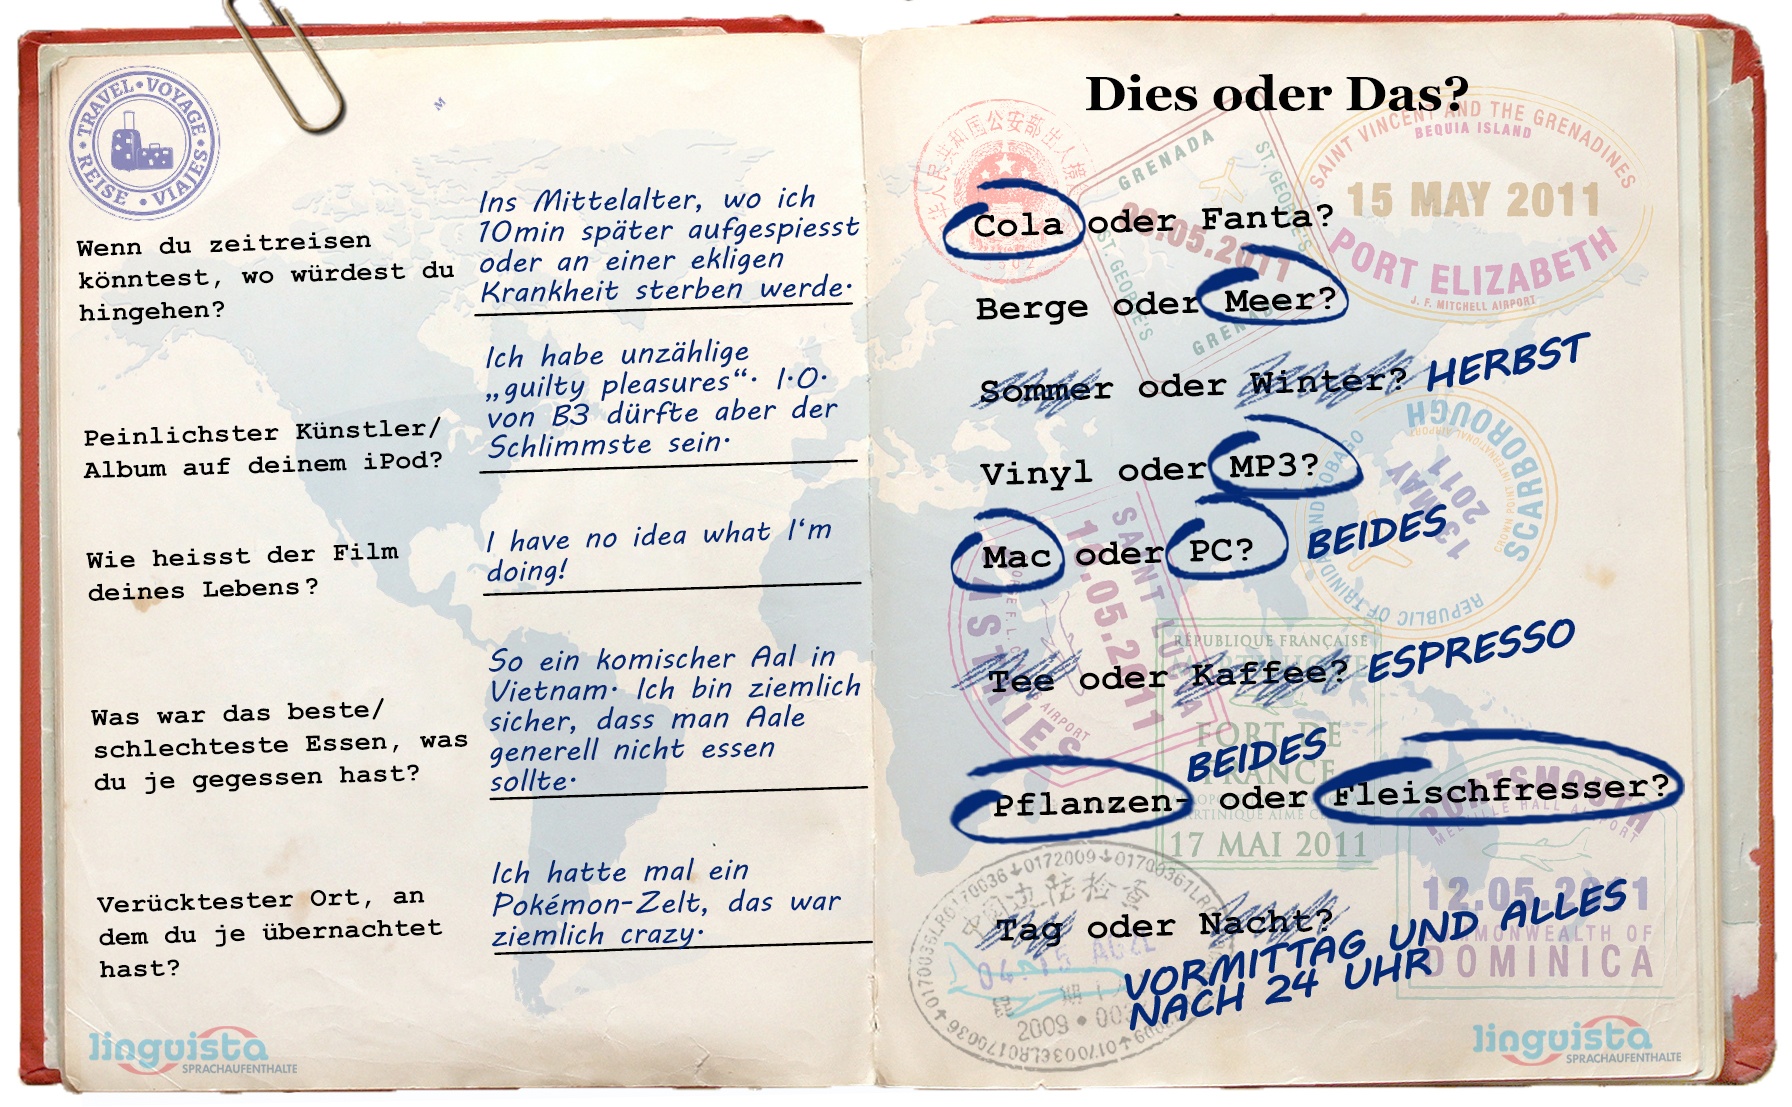 TRAVEL • VOYAGE • VIAJES • REISE
Wenn du zeitreisen
könntest, wo würdest du
hingehen?
Ins Mittelalter, wo ich
10min später aufgespiesst
oder an einer ekligen
Krankheit sterben werde.
Peinlichster Künstler/
Album auf deinem iPod?
Ich habe unzählige
„guilty pleasures“. I.O.
von B3 dürfte aber der
Schlimmste sein.
Wie heisst der Film
deines Lebens?
I have no idea what I‘m
doing!
Was war das beste/
schlechteste Essen, was
du je gegessen hast?
So ein komischer Aal in
Vietnam. Ich bin ziemlich
sicher, dass man Aale
generell nicht essen
sollte.
Verücktester Ort, an
dem du je übernachtet
hast?
Ich hatte mal ein
Pokémon-Zelt, das war
ziemlich crazy.
linguista
SPRACHAUFENTHALTE
Dies oder Das?
Cola oder Fanta?
Berge oder Meer?
Sommer oder Winter? HERBST
Vinyl oder MP3?
Mac oder PC? BEIDES
Tee oder Kaffee? ESPRESSO
BEIDES
Pflanzen- oder Fleischfresser?
Tag oder Nacht?
VORMITTAG UND ALLES
NACH 24 UHR
GRENADA
ST. GEORGE'S
ST. GEORGE'S
GRENADA
SAINT VINCENT AND THE GRENADINES
BEQUIA ISLAND
15 MAY 2011
PORT ELIZABETH
J. F. MITCHELL AIRPORT
SCARBOROUGH
CROWN POINT INTERNATIONAL AIRPORT
13 MAY
2011
REPUBLIC OF TRINIDAD AND TOBAGO
SAINT LUCIA
05.2011
AIRPORT
RÉPUBLIQUE FRANÇAISE
FORT DE
FRANCE
17 MAI 2011
PORTSMOUTH
MELVILLE HALL AIRPORT
12.05.2011
COMMONWEALTH OF
DOMINICA
中国边防检查
2009
linguista
SPRACHAUFENTHALTE